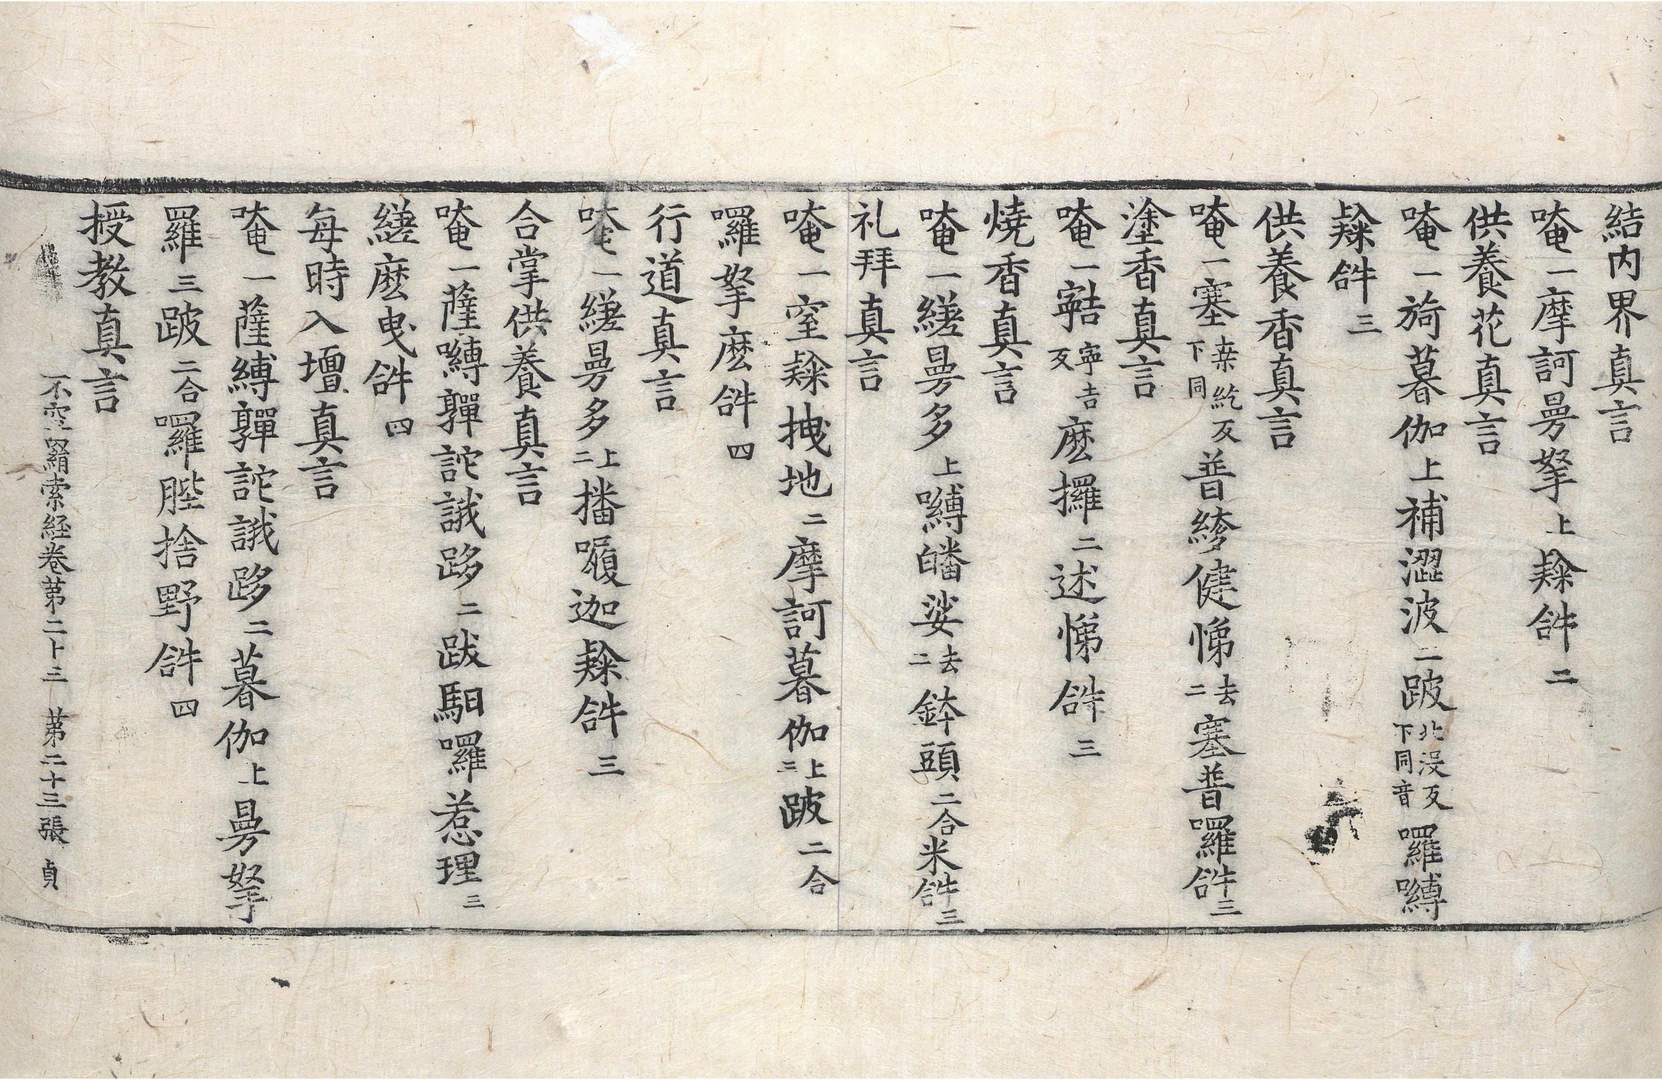 結内界真言
唵一摩訶曼拏上㘑𤙖二
供養花真言
唵一旖暮伽上補澀波二跛北没反下同音囉嚩
㘑𤙖三
供養香真言
唵一塞桒紇反下同普絝健悌去二塞普囉𤙖三
塗香真言
唵一𡫸寧吉反麽攞二述悌𤙖三
燒香真言
唵一縒曼多上嚩皤娑去二鉢頭二合米𤙖三
礼拜真言
唵一窒㘑拽地二摩訶暮伽上三跛二合
囉拏麽𤙖四
行道真言
唵一縒曼多上二播囉迦㘑𤙖三
合掌供養真言
唵一薩嚩嚲詑誐跢二跋馹囉惹理三
縒麽曳𤙖四
每時入壇真言
唵一薩縛嚲詑誐跢二暮伽上曼拏
羅三跛二合囉陛捨野𤙖四
授教真言
不空羂索経卷第二十三 第二十三張 貞